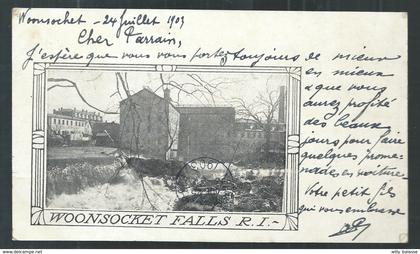 Woonsocket - 24 Juillet 1903
Cher Parrain,
J'espère que vous vous portez toujours de mieux
en mieux
et que vous
avez profité
des beaux
jours pour faire
quelques prome-
nades en voiture
Votre petit fils
qui vous embrasse
WOONSOCKET FALLS R.I.